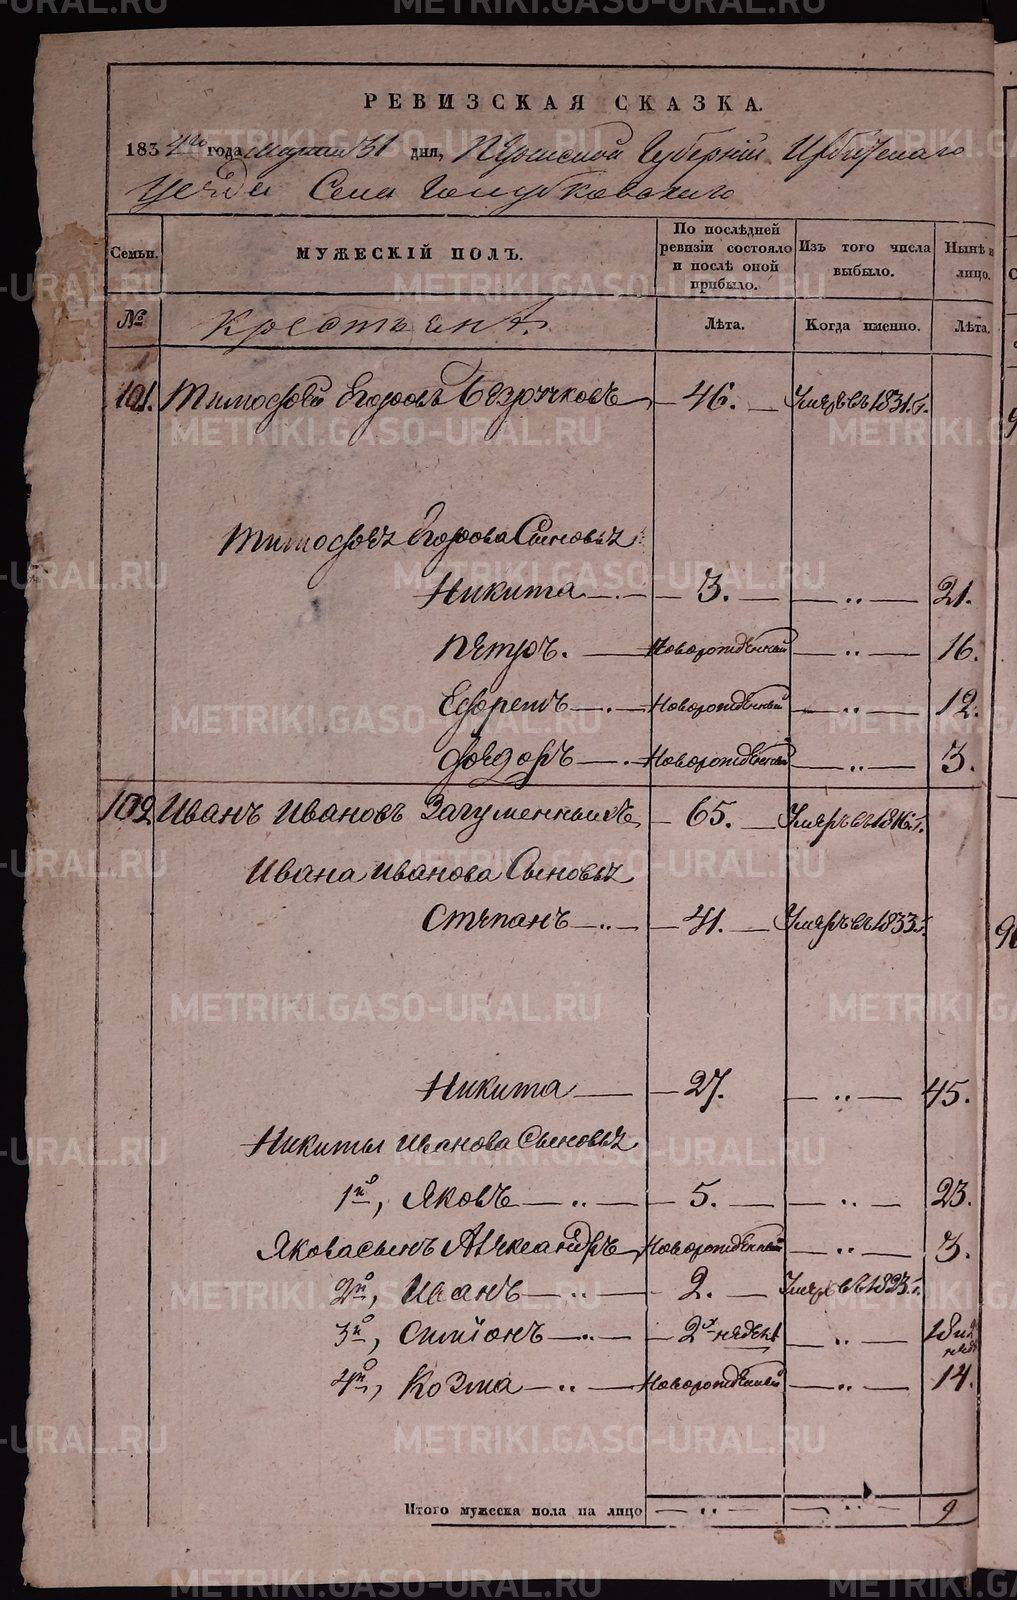 РЕВИЗСКАЯ СКАЗКА.
1834го года Марта 31 дня, Пермской Губернии Ирбитскаго
Уезда Села Голубковскаго
Семьи. МУЖЕСКІЙ ПОЛЪ. По послѣдней ревизіи состояло и послѣ оной прибыло. Изъ того числа выбыло. Нынѣ на лицо.
№ Крестьянъ. Лѣта. Когда именно. Лѣта.
101. Тимофей Егоровъ 46. Умре въ 1831 г.
Тимофея Егорова Сыновья
Никита 3. 21.
Петръ. Новорожденный 16.
Ефремъ Новорожденный 12.
Федоръ Новорожденный 3.
102 Иванъ Ивановъ Загуменныхъ 65. Умре въ 1816 г.
Ивана Иванова Сыновья
Степанъ 41. Умре въ 1833 г.
Никита 27. 45.
Никиты Иванова Сыновья
1й, Яковъ 5. 23.
Якова сынъ Александръ Новорожденный 3.
2й, Иванъ 2. Умре въ 1823 г.
3й, Симіонъ 2х недель 18 и 2 нед
4й, Козма Новорожденный 14.
Итого мужеска пола на лицо 9
METRIKI.GASO-URAL.RU